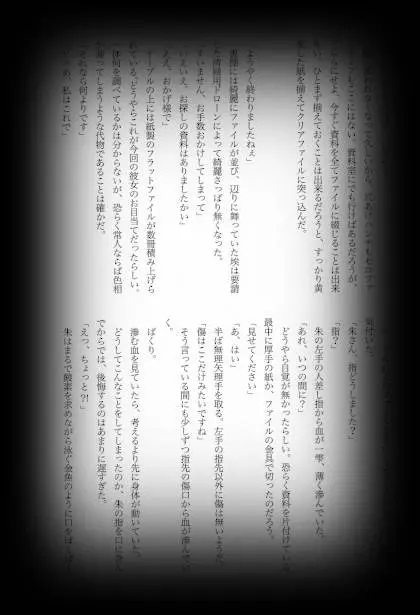 にせよ、今すぐ資料を全てファイルに綴じることは出来
ない。ひとまず揃えておくことは出来るだろうと、すっかり黄
した紙を揃えてクリアファイルに突っ込んだ。
「ようやく終わりましたねぇ」
には綺麗にファイルが並び、辺りに舞っていた埃は要請
した清掃用ドローンによって綺麗さっぱり無くなった。
「すいません、お手数おかけしてしまって」
「いいえ、お探しの資料はありましたかい」
「ええ、おかげ様で」
テーブルの上には紙製のフラットファイルが数冊積み上げら
れている。どうやらこれが今回の彼女のお目当てだったらしい。
何を調べているかは分からないが、恐らく常人ならば色相
ってしまうような代物であることは確かだ。
「それなら何よりです」
私はこれで」
気付いた。
「朱さん、指どうしました?」
「指?」
朱の左手の人差し指から血が一雫、薄く滲んでいた。
「あれ、いつの間に?」
どうやら自覚が無かったらしい。恐らく資料を片付けている
最中に厚手の紙か、ファイルの金具で切ったのだろう。
「見せてください」
「あ、はい」
半ば無理矢理手を取る。左手の指先以外に傷は無いようだ。
「傷はここだけみたいですね」
そう言っている間にも少しずつ指先の傷口から血が滲んでい
く。
ぱくり。
滲む血を見ていたら、考えるより先に身体が動いていた。
どうしてこんなことをしてしまったのか、朱の指を口に含ん
でからでは、後悔するのはあまりに遅すぎた。
「えっ、ちょっと?!」
朱はまるで酸素を求めながら泳ぐ金魚のように口をぱくぱく